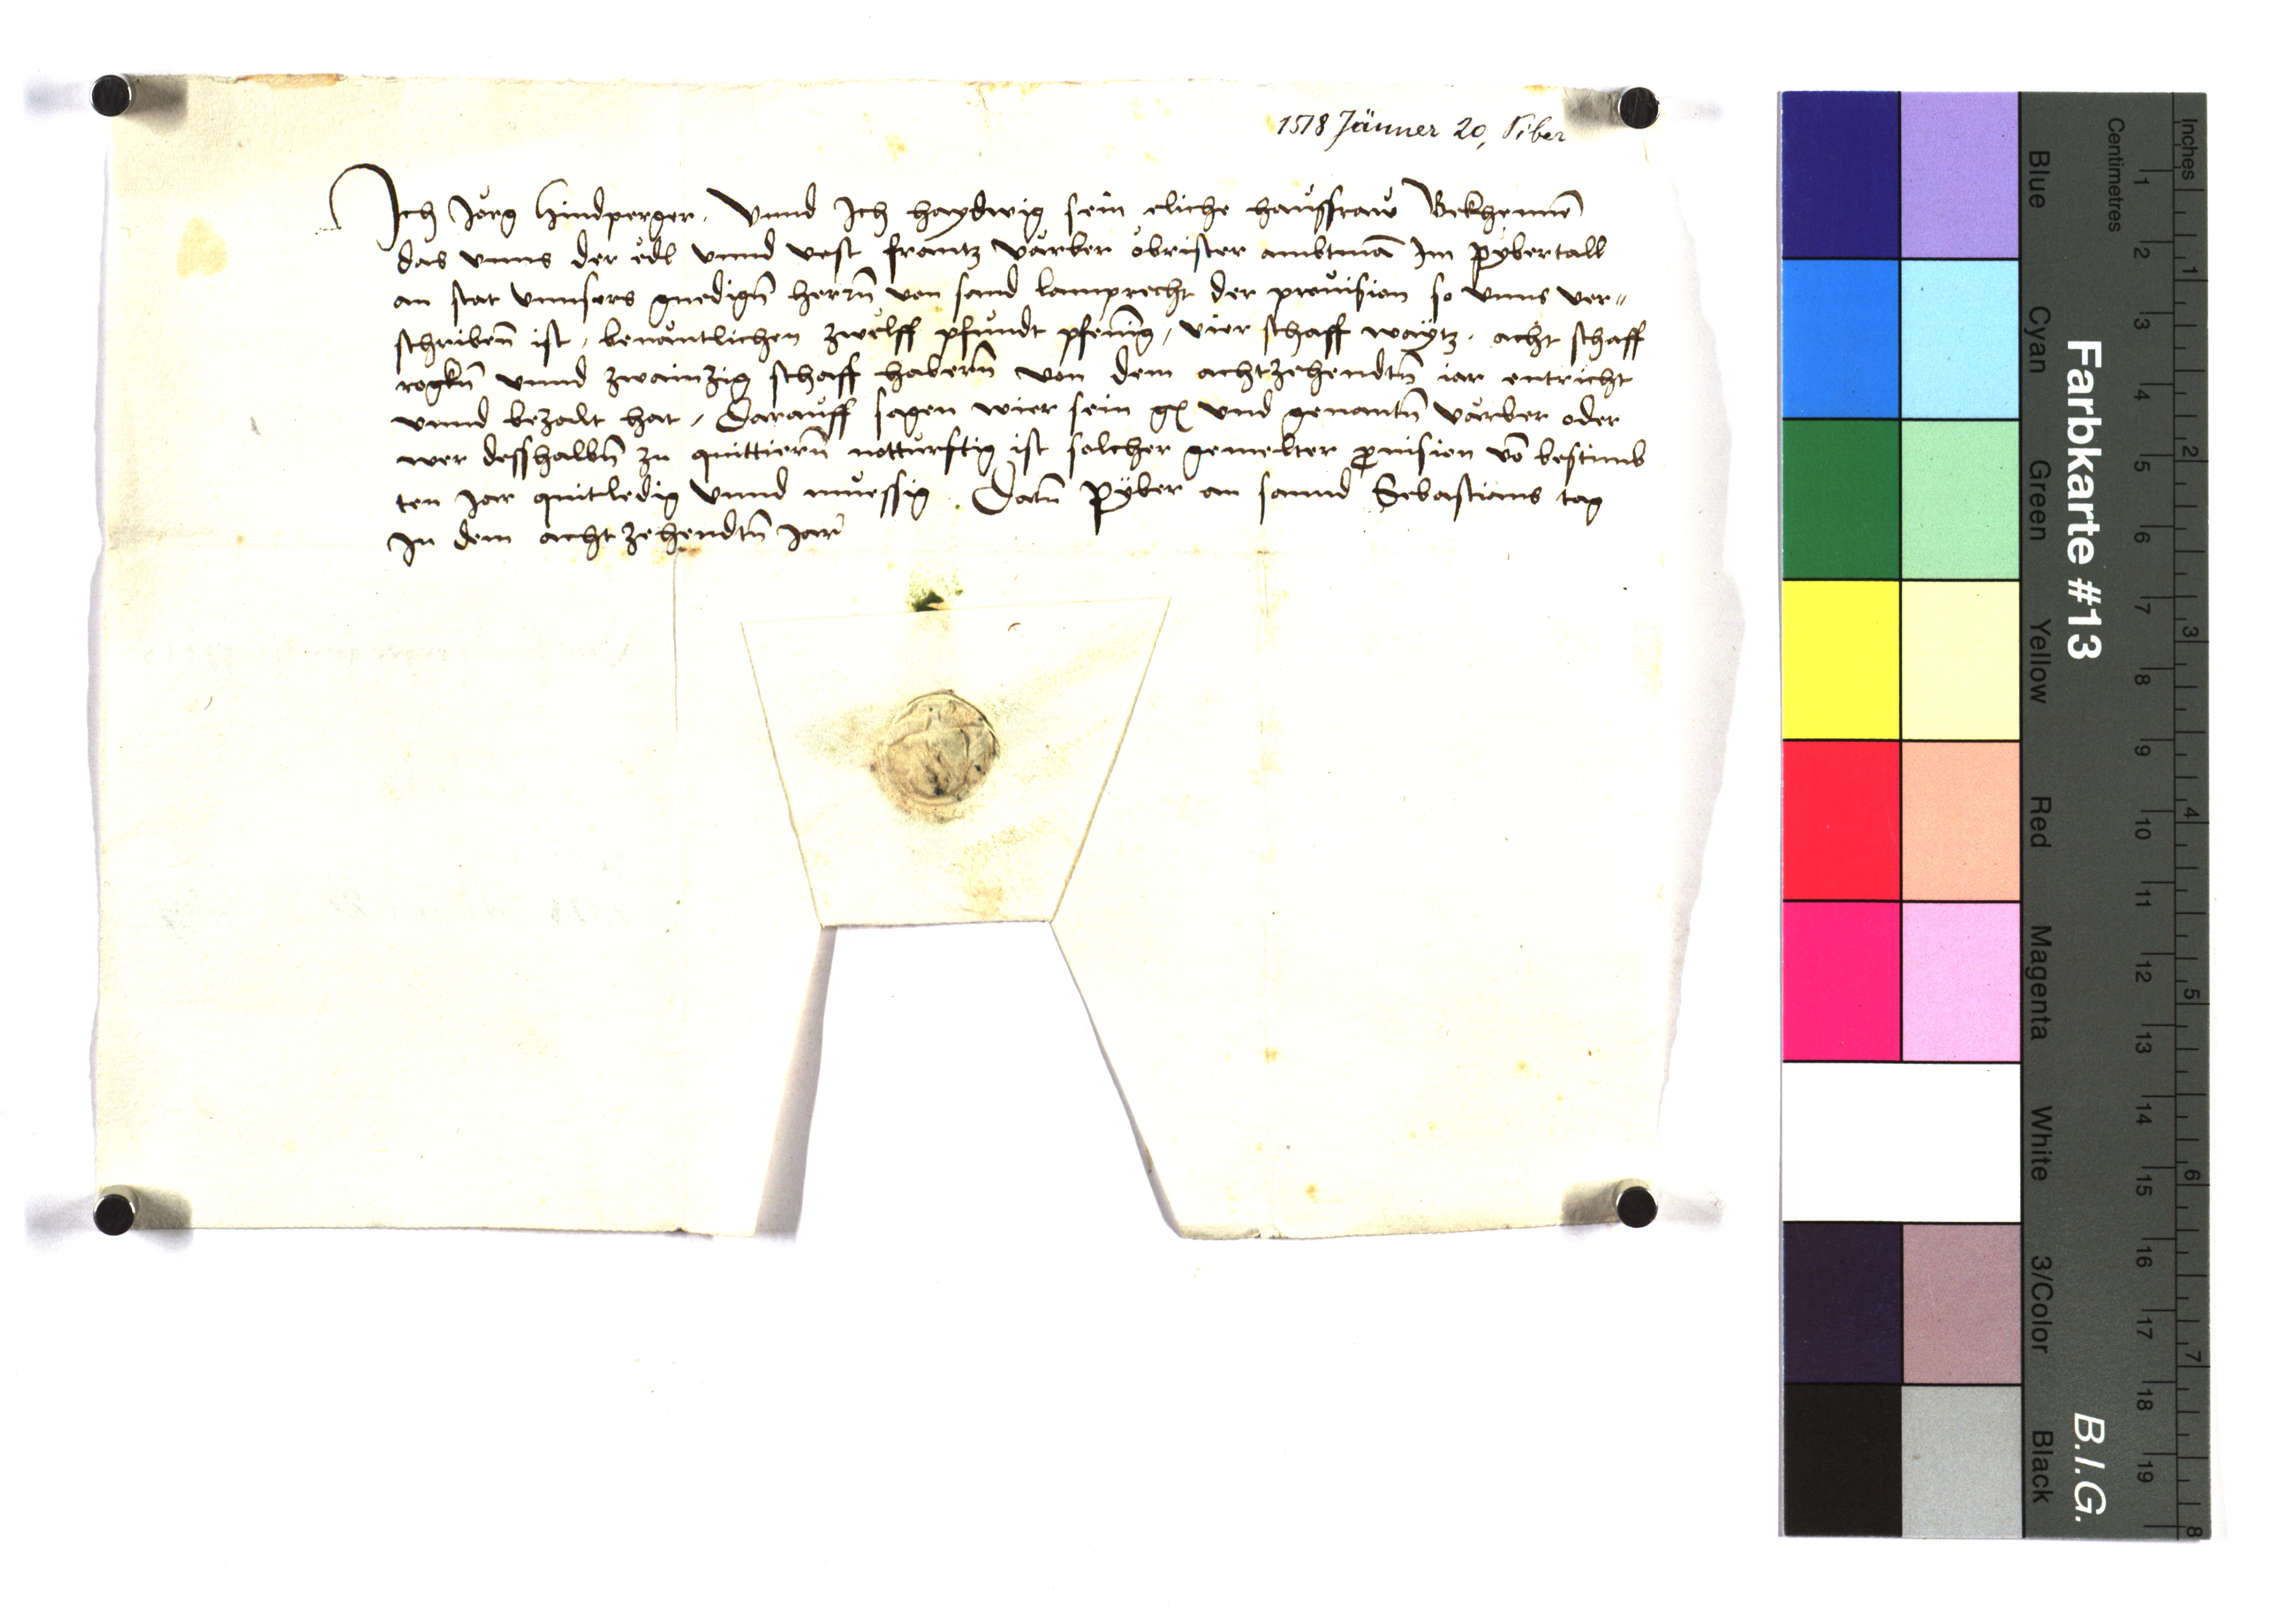 1518 Jänner 20, Piber
Ich Jörg Hindperger, Vnnd Ich haydwig sein eliche haussfraw Bekhennē
das vnns der edl vnnd vest frantz värber obrister ambtmā Im pybertall
an stat vnnsers gnedign̄ herrn̄ von sand lamprecht der prouision so vnns ver„
schribenn̄ ist, benantlichen zwelff pfundt pfenīg, vier schaff waytz, acht schaff
rogkn̄ vnnd zwainzig schaff habern̄ von dem achtzehendtn̄ iar entricht
vnnd bezalt hat, Darauff sagen wier sein vnd genantn̄ värber oder
wer desshalbn̄ zu quittiern̄ notturftig ist solcher gemelter prouision vō bestimb
ten Jar quitledig vnnd muessig. Datū pyber an sannd Sebastians tag
In dem achtzehendtn̄ Jar
Farbkarte #13
B.I.G.
Blue
Cyan
Green
Yellow
Red
Magenta
White
3/Color
Black
Centimetres
1 2 3 4 5 6 7 8 9 10 11 12 13 14 15 16 17 18 19
Inches
1 2 3 4 5 6 7 8